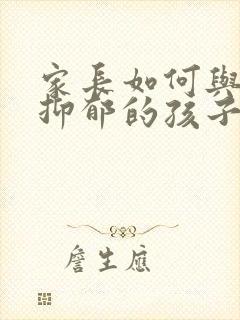 家长如何與
抑郁的孩子
詹生應